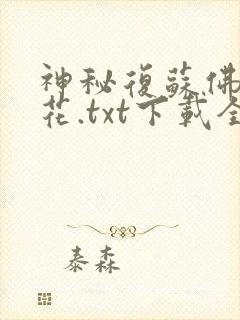 神秘復蘇佛
花.txt下載全
泰森